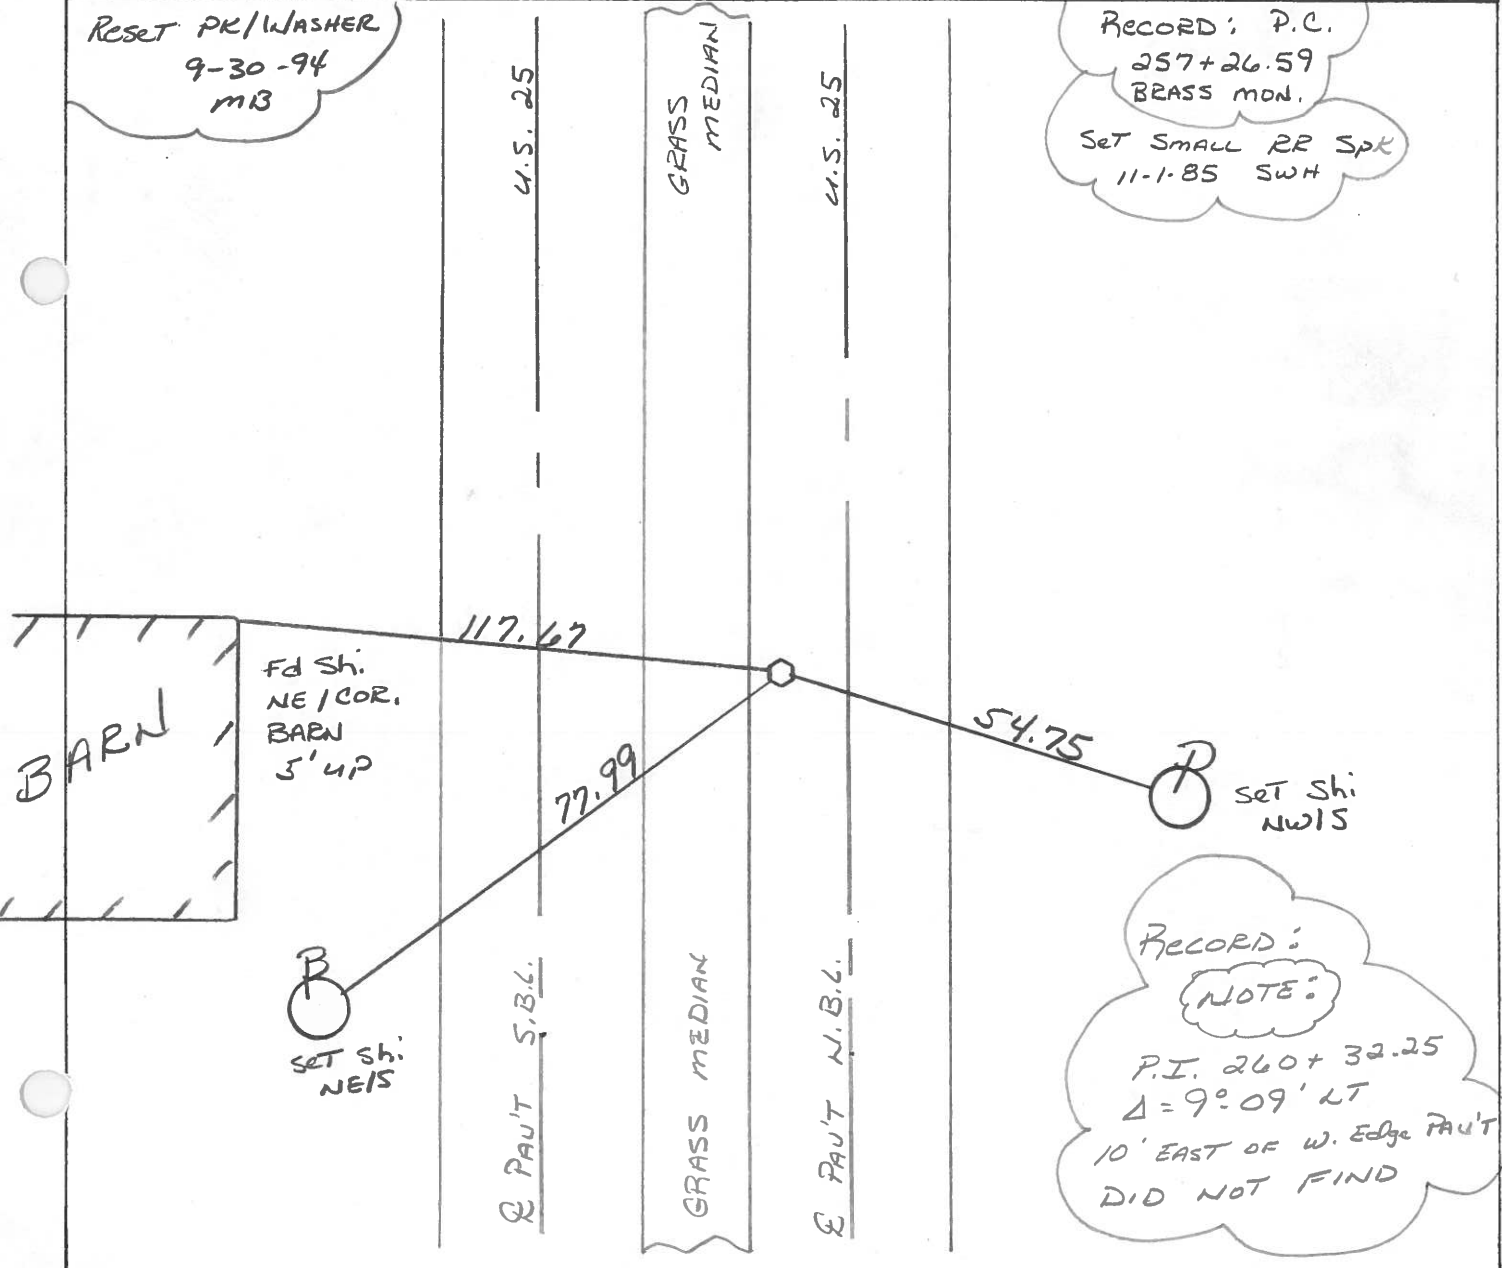 Reset PK/WASHER
9-30-94
MB
U.S. 25
GRASS
MEDIAN
U.S. 25
RECORD: P.C.
257+26.59
BRASS MON.
SET SMALL RR SPK
11-1-85 SWH
117.67
Fd Shi.
NE/COR.
BARN
5' UP
BARN
77.99
54.75
P
SET Shi
NW/S
B
SET Shi
NE/S
℄ PAV'T S.B.L.
GRASS MEDIAN
℄ PAV'T N.B.L.
RECORD:
NOTE:
P.I. 260+32.25
Δ = 9°-09' LT
10' EAST OF W. Edge PAV'T
DID NOT FIND